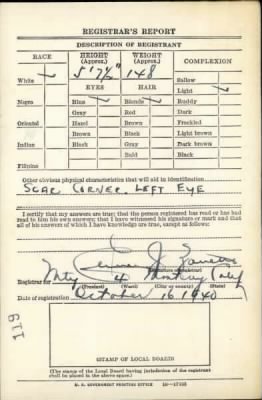 REGISTRAR'S REPORT
DESCRIPTION OF REGISTRANT
RACE HEIGHT (Approx.) WEIGHT (Approx.) COMPLEXION
5'7½" 148
White ✓ EYES HAIR Sallow
Light ✓
Negro Blue ✓ Blonde ✓ Ruddy
Gray Red Dark
Oriental Hazel Brown Freckled
Brown Black Light brown
Indian Black Gray Dark brown
Bald Black
Filipino
Other obvious physical characteristics that will aid in identification
SCAR CORNER LEFT EYE
I certify that my answers are true; that the person registered has read or has had
read to him his own answers; that I have witnessed his signature or mark and that
all of his answers of which I have knowledge are true, except as follows:
(Signature of registrar)
Registrar for 4 Monterey Calif
(Precinct) (Ward) (City or county) (State)
Date of registration October 16 1940
119
(STAMP OF LOCAL BOARD)
(The stamp of the Local Board having jurisdiction of the registrant
shall be placed in the above space.)
U. S. GOVERNMENT PRINTING OFFICE